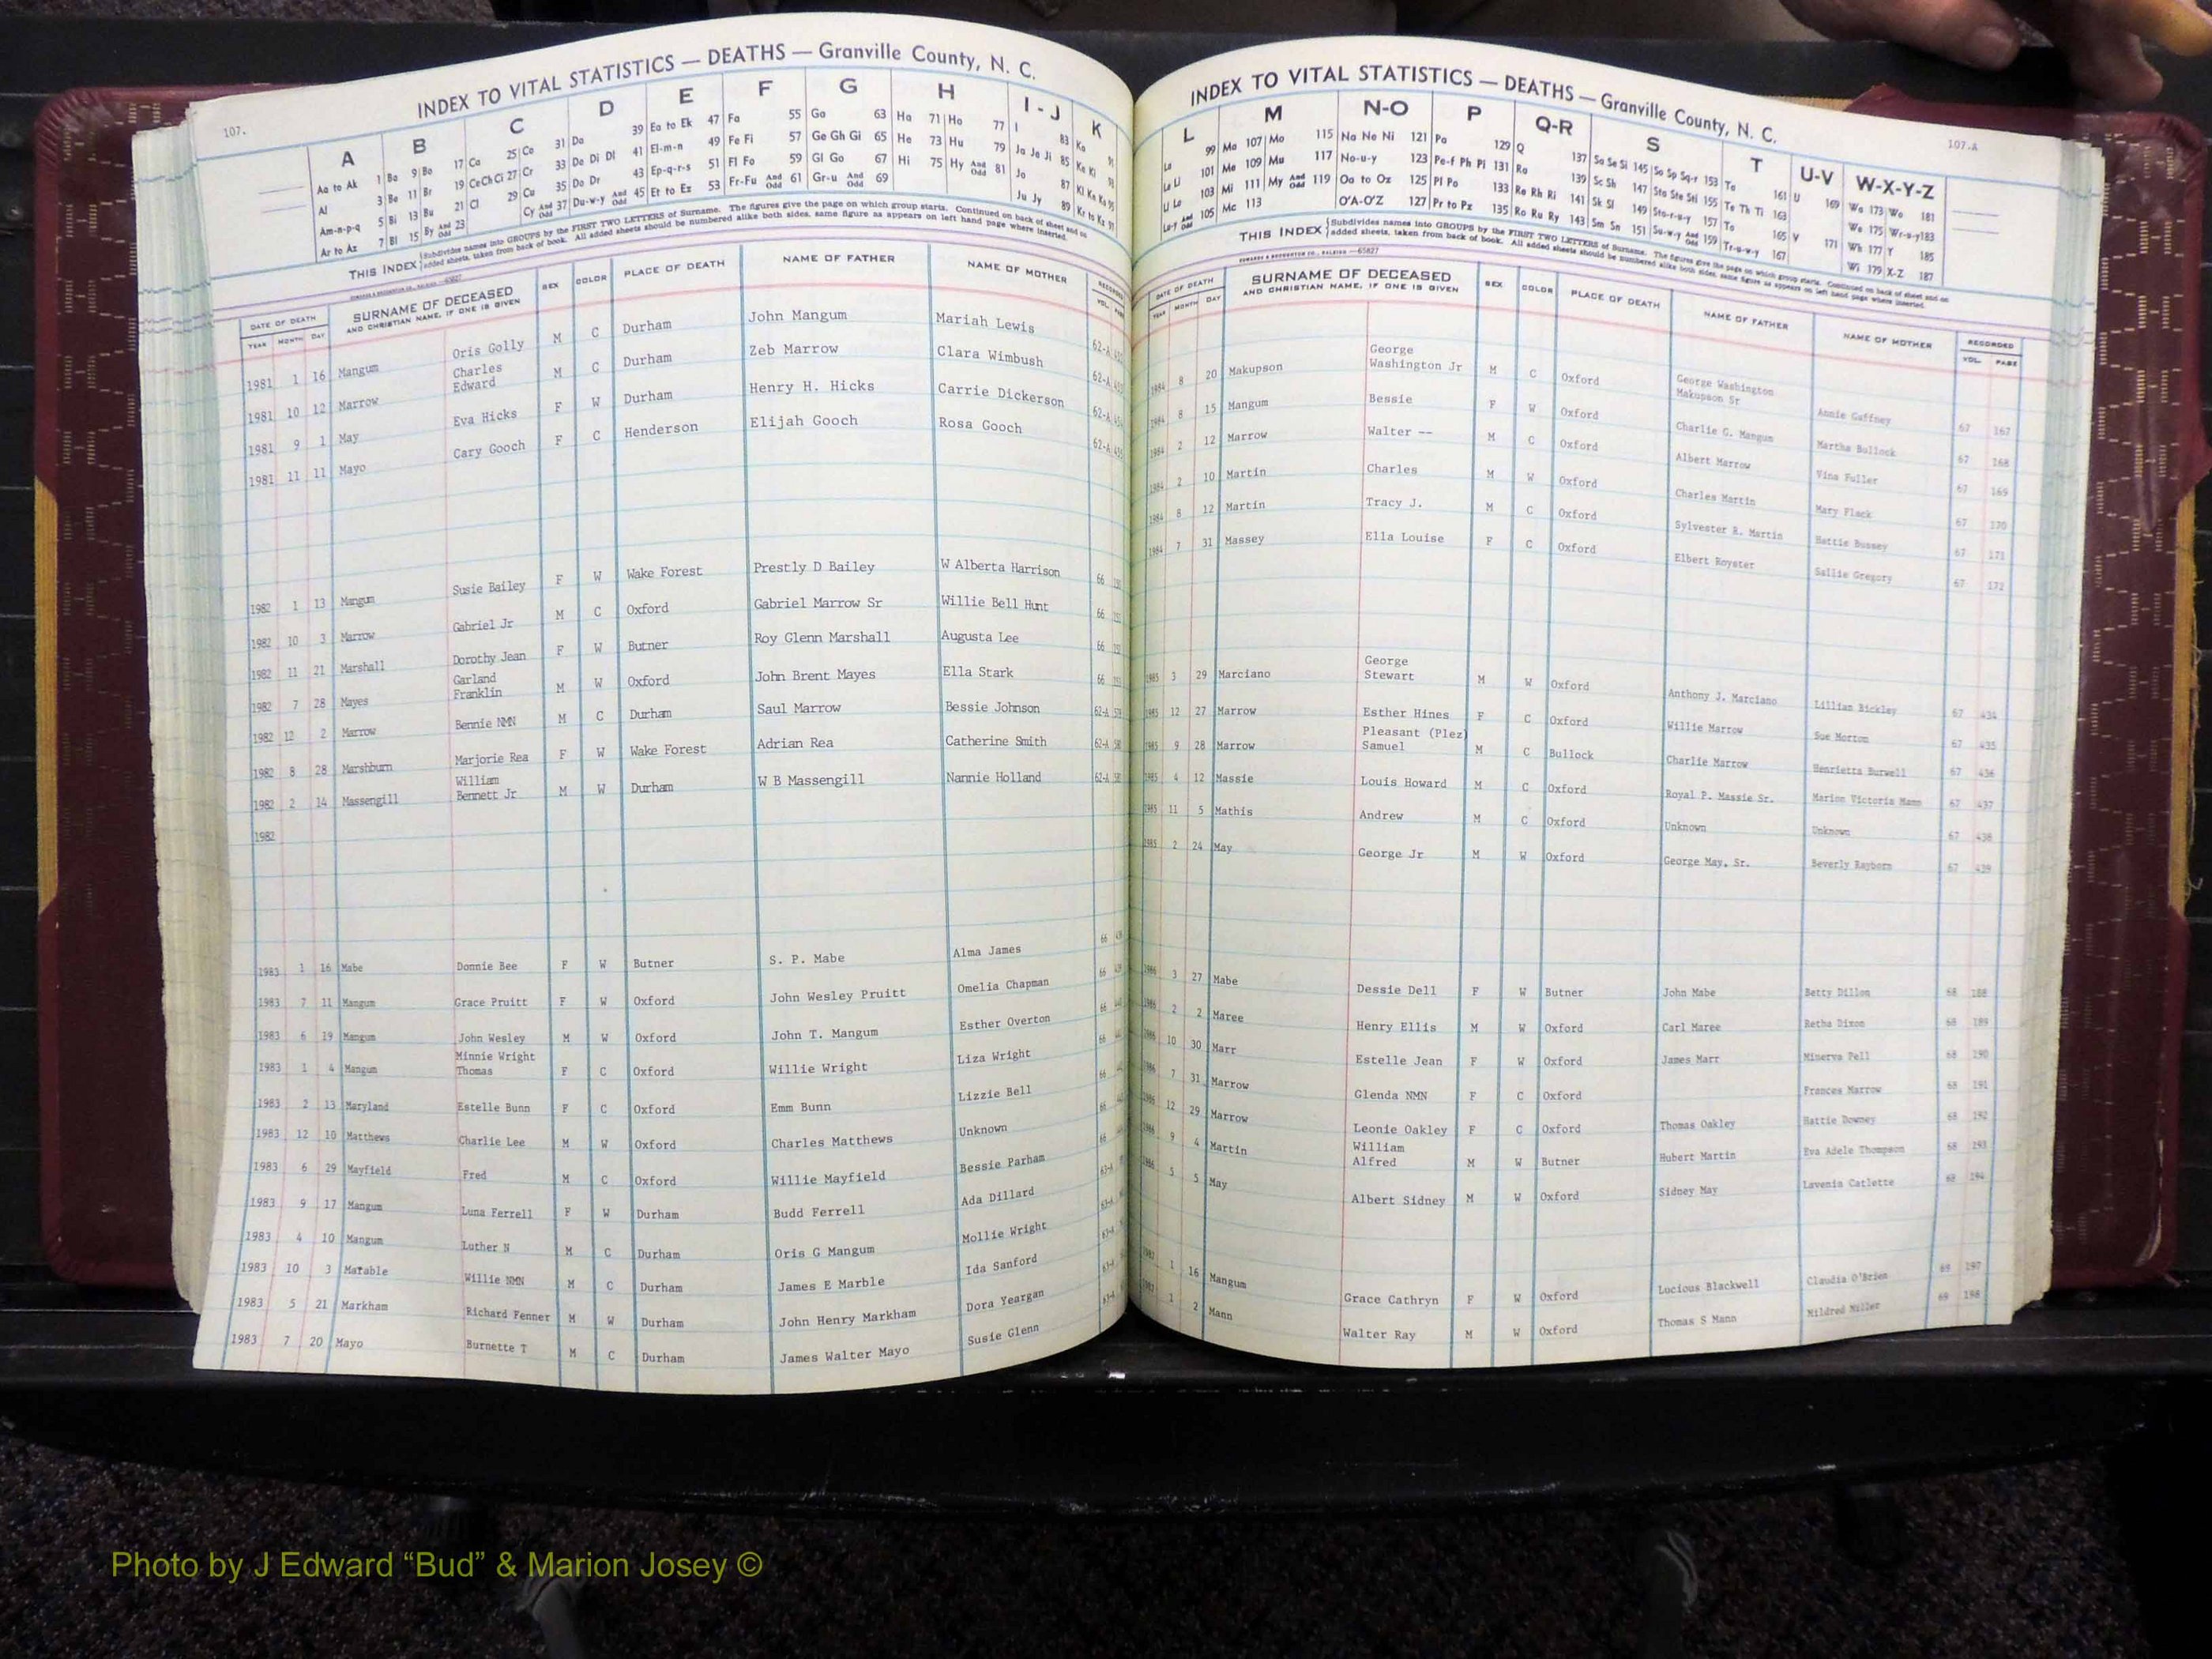 107.
INDEX TO VITAL STATISTICS — DEATHS — Granville County, N. C.
A B C D E F G H I - J K
Aa to Ak 1 Ba 9 Bo 17 Ca 25 Co 31 Da 39 Ea to Ek 47 Fa 55 Ga 63 Ha 71 Ho 77 I 83 Ka 91
Al 3 Be 11 Br 19 Ce Ch Ci 27 Cr 33 De Di Dl 41 El-m-n 49 Fe Fi 57 Ge Gh Gi 65 He 73 Hu 79 Ja Je Ji 85 Ke Ki 93
Am-n-p-q 5 Bi 13 Bu 21 Cl 29 Cu 35 Do Dr 43 Ep-q-r-s 51 Fl Fo 59 Gl Go 67 Hi 75 Hy And Odd 81 Jo 87
Ar to Az 7 Bl 15 By And Odd 23 Cy And Odd 37 Du-w-y And Odd 45 Et to Ez 53 Fr-Fu And Odd 61 Gr-u And Odd 69 Ju Jy 89 Kr to Kz 97
THIS INDEX Subdivides names into GROUPS by the FIRST TWO LETTERS of Surname. The figures give the page on which group starts. Continued on back of sheet and on
added sheets, taken from back of book. All added sheets should be numbered alike both sides, same figure as appears on left hand page where inserted.
DATE OF DEATH SURNAME OF DECEASED SEX COLOR PLACE OF DEATH NAME OF FATHER NAME OF MOTHER RECORDED
YEAR MONTH DAY AND CHRISTIAN NAME, IF ONE IS GIVEN VOL. PAGE
1981 1 16 Mangum Oris Golly M C Durham John Mangum Mariah Lewis 62-A
1981 10 12 Marrow Charles Edward M C Durham Zeb Marrow Clara Wimbush 62-A
1981 9 1 May Eva Hicks F W Durham Henry H. Hicks Carrie Dickerson 62-A
1981 11 11 Mayo Cary Gooch F C Henderson Elijah Gooch Rosa Gooch 62-A
1982 1 13 Mangum Susie Bailey F W Wake Forest Prestly D Bailey W Alberta Harrison 66
1982 10 3 Marrow Gabriel Jr M C Oxford Gabriel Marrow Sr Willie Bell Hunt 66
1982 11 21 Marshall Dorothy Jean F W Butner Roy Glenn Marshall Augusta Lee 66
1982 7 28 Mayes Garland Franklin M W Oxford John Brent Mayes Ella Stark 66
1982 12 2 Marrow Bennie NMN M C Durham Saul Marrow Bessie Johnson 62-A
1982 8 28 Marshburn Marjorie Rea F W Wake Forest Adrian Rea Catherine Smith 62-A
1982 2 14 Massengill William Bennett Jr M W Durham W B Massengill Nannie Holland 62-A
1982
1983 1 16 Mabe Donnie Bee F W Butner S. P. Mabe Alma James 66
1983 7 11 Mangum Grace Pruitt F W Oxford John Wesley Pruitt Omelia Chapman 66
1983 6 19 Mangum John Wesley M W Oxford John T. Mangum Esther Overton 66
1983 1 4 Mangum Minnie Wright Thomas F C Oxford Willie Wright Liza Wright 66
1983 2 13 Maryland Estelle Bunn F C Oxford Emm Bunn Lizzie Bell 66
1983 12 10 Matthews Charlie Lee M W Oxford Charles Matthews Unknown 66
1983 6 29 Mayfield Fred M C Oxford Willie Mayfield Bessie Parham 66
1983 9 17 Mangum Luna Ferrell F W Durham Budd Ferrell Ada Dillard 63-A
1983 4 10 Mangum Luther N M C Durham Oris G Mangum Mollie Wright 63-A
1983 10 3 Marable Willie NMN M C Durham James E Marble Ida Sanford 63-A
1983 5 21 Markham Richard Fenner M W Durham John Henry Markham Dora Yeargan 63-A
1983 7 20 Mayo Burnette T M C Durham James Walter Mayo Susie Glenn 63-A
107.A
INDEX TO VITAL STATISTICS — DEATHS — Granville County, N. C.
L M N-O P Q-R S T U-V W-X-Y-Z
La 99 Ma 107 Mo 115 Na Ne Ni 121 Pa 129 Q 137 Sa Se Si 145 So Sp Sq-r 153 Ta 161 U 169 Wa 173 Wo 181
Le Li 101 Me 109 Mu 117 No-u-y 123 Pe-f Ph Pi 131 Ra 139 Sc Sh 147 Sta Ste Sti 155 Te Th Ti 163 We 175 Wr-u-y 183
Ll Lo 103 Mi 111 My And Odd 119 Oa to Oz 125 Pl Po 133 Re Rh Ri 141 Sk Sl 149 Sto-r-u-y 157 To 165 V 171 Wh 177 Y 185
Lu-y And Odd 105 Mc 113 O'A-O'Z 127 Pr to Pz 135 Ro Ru Ry 143 Sm Sn 151 Su-w-y And Odd 159 Tr-u-w-y 167 Wi 179 X-Z 187
THIS INDEX Subdivides names into GROUPS by the FIRST TWO LETTERS of Surname. The figures give the page on which group starts. Continued on back of sheet and on
added sheets, taken from back of book. All added sheets should be numbered alike both sides, same figure as appears on left hand page where inserted.
EDWARDS & BROUGHTON CO., RALEIGH —65827
DATE OF DEATH SURNAME OF DECEASED SEX COLOR PLACE OF DEATH NAME OF FATHER NAME OF MOTHER RECORDED
YEAR MONTH DAY AND CHRISTIAN NAME, IF ONE IS GIVEN VOL. PAGE
1984 8 20 Makupson George Washington Jr M C Oxford George Washington Makupson Sr Annie Gaffney 67 167
1984 8 15 Mangum Bessie F W Oxford Charlie G. Mangum Martha Bullock 67 168
1984 2 12 Marrow Walter -- M C Oxford Albert Marrow Vina Fuller 67 169
1984 2 10 Martin Charles M W Oxford Charles Martin Mary Flack 67 170
1984 8 12 Martin Tracy J. M C Oxford Sylvester R. Martin Hattie Bussey 67 171
1984 7 31 Massey Ella Louise F C Oxford Elbert Royster Sallie Gregory 67 172
1985 3 29 Marciano George Stewart M W Oxford Anthony J. Marciano Lillian Bickley 67 434
1985 12 27 Marrow Esther Hines F C Oxford Willie Marrow Sue Morton 67 435
1985 9 28 Marrow Pleasant (Plez) Samuel M C Bullock Charlie Marrow Henrietta Burwell 67 436
1985 4 12 Massie Louis Howard M C Oxford Royal P. Massie Sr. Marion Victoria Mann 67 437
1985 11 5 Mathis Andrew M C Oxford Unknown Unknown 67 438
1985 2 24 May George Jr M W Oxford George May, Sr. Beverly Rayborn 67 439
1986 3 27 Mabe Dessie Dell F W Butner John Mabe Betty Dillon 68 188
1986 2 2 Maree Henry Ellis M W Oxford Carl Maree Retha Dixon 68 189
1986 10 30 Marr Estelle Jean F W Oxford James Marr Minerva Pell 68 190
1986 7 31 Marrow Glenda NMN F C Oxford Frances Marrow 68 191
1986 12 29 Marrow Leonie Oakley F C Oxford Thomas Oakley Hattie Downey 68 192
1986 9 4 Martin William Alfred M W Butner Hubert Martin Eva Adele Thompson 68 193
1986 5 5 May Albert Sidney M W Oxford Sidney May Lavenia Catlette 68 194
1987 1 16 Mangum Grace Cathryn F W Oxford Lucious Blackwell Claudia O'Brien 69 197
1987 1 2 Mann Walter Ray M W Oxford Thomas S Mann Mildred Miller 69 198
Photo by J Edward “Bud” & Marion Josey ©